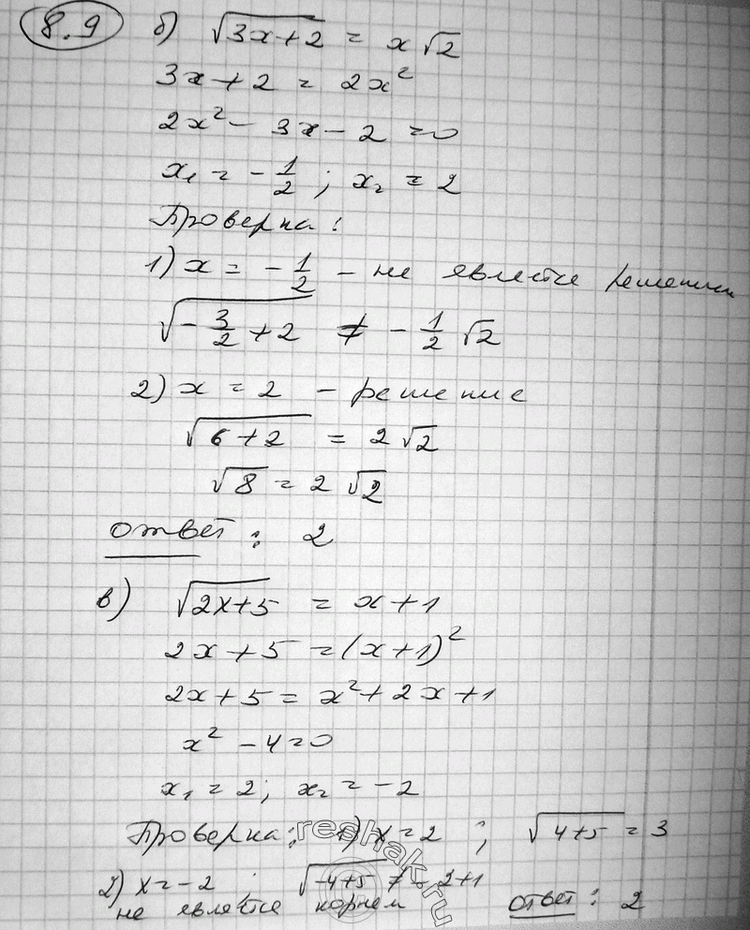 8.9 б) √(3x+2) = x√2
3x+2 = 2x²
2x² - 3x - 2 = 0
x₁ = -1/2; x₂ = 2
Проверка:
1) x = -1/2 - не является решением
√(-3/2+2) ≠ -1/2 √2
2) x = 2 - решение
√(6+2) = 2√2
√8 = 2√2
Ответ: 2
в) √(2x+5) = x+1
2x+5 = (x+1)²
2x+5 = x²+2x+1
x² - 4 = 0
x₁ = 2; x₂ = -2
Проверка: 1) x = 2; √(4+5) = 3
2) x = -2; √(-4+5) ≠ -2+1
не является корнем Ответ: 2
reshak.ru